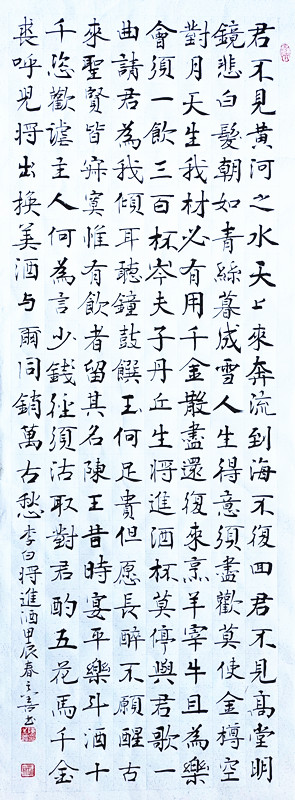 君不見黃河之水天上來奔流到海不復回君不見高堂明
鏡悲白髮朝如青絲暮成雪人生得意須盡歡莫使金樽空
對月天生我材必有用千金散盡還復來烹羊宰牛且為樂
會須一飲三百杯岑夫子丹丘生將進酒杯莫停與君歌一
曲請君為我傾耳聽鐘鼓饌玉何足貴但愿長醉不願醒古
來聖賢皆寂寞惟有飲者留其名陳王昔時宴平樂斗酒十
千恣歡謔主人何為言少錢徑須沽取對君酌五花馬千金
裘呼兒將出換美酒与爾同銷萬古愁 李白將進酒甲辰春